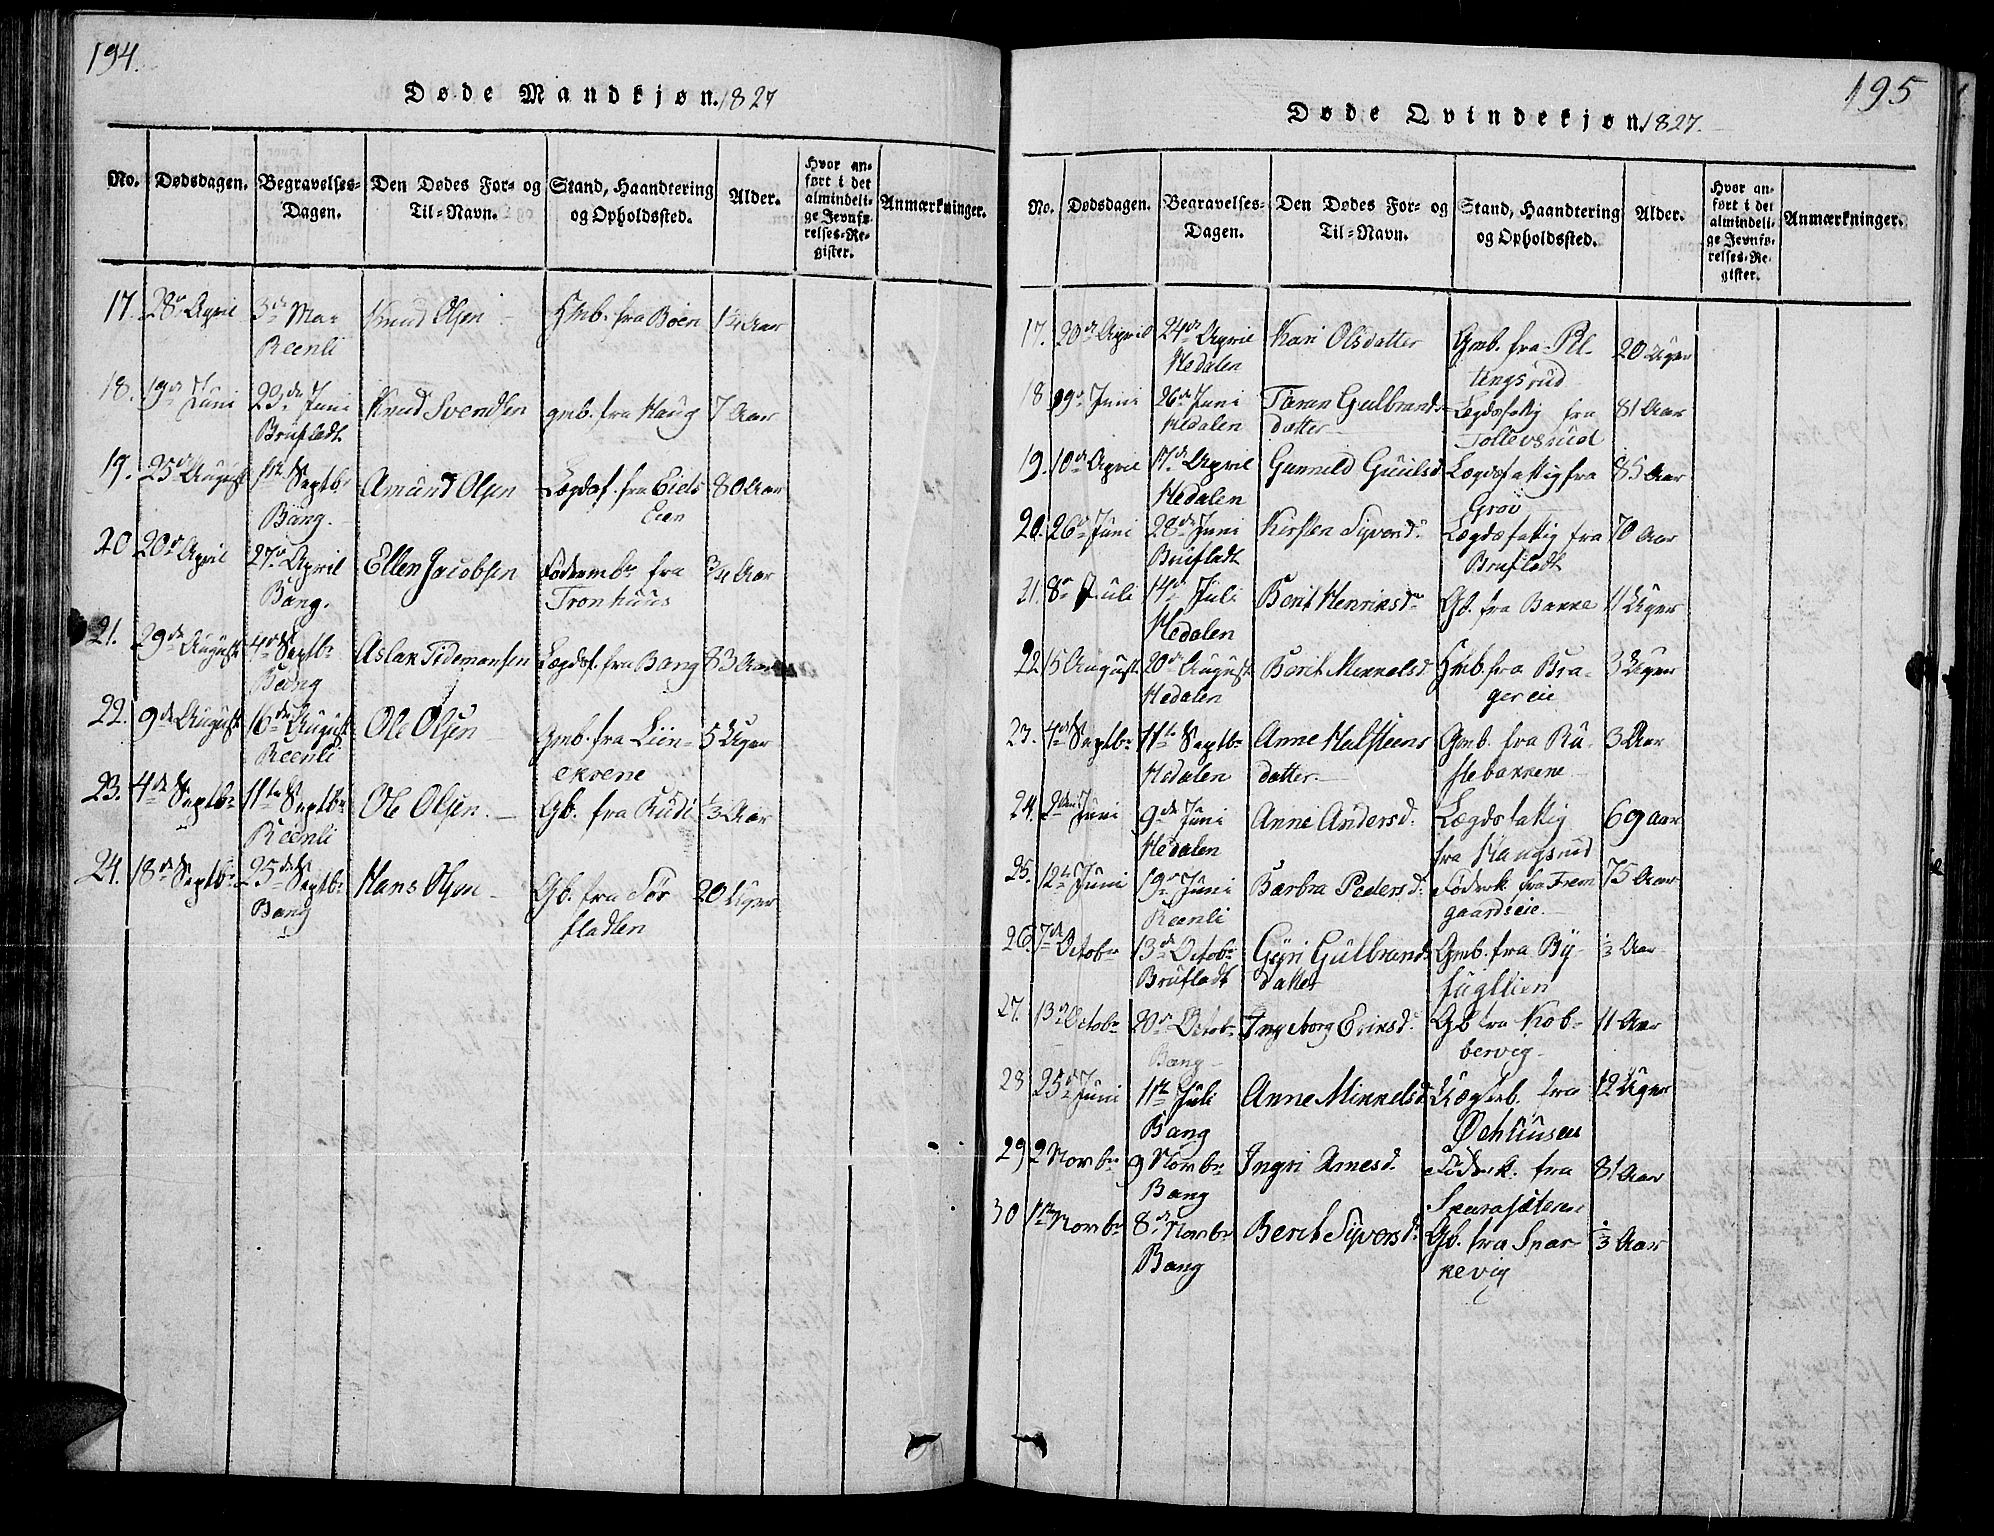 194.
Døde Mandkjøn. 1827
No. Dødsdagen. Begravelses-Dagen. Den Dødes For- og Til-Navn. Stand, Haandtering og Opholdssted. Alder. Hvor anført i det almindelige Jevnførelses-Register. Anmærkninger.
17. 28de April 3de Mai Knud Olsen Hmb. fra Böen 1¼ Aar
Reenli
18. 19de Juni 23de Juni Knud Svendsen gmb. fra Haug 7 Aar
Brufladt
19. 25de August 1ste Septbr Amund Olsen Lægdsf. fra Eids 80 Aar
Bang. Eien
20 20de April 27de April Ellen Jacobsen Födermb. fra ¾ Aar
Bang. Tronhuus
21. 29de August 4de Septbr Aslak Tidemansen Lægdsf. fra Bang 83 Aar
Bang
22. 9de August 16de August Ole Olsen Gmb. fra Liin- 5 Uger
Reenli ekvene
23. 4de Septbr 11te Septbr Ole Olsen Gb. fra Rudi ⅓ Aar
Reenli
24. 18de Septbr 25de Septbr Hans Olsen Gb. fra Tör 20 Uger
Bang fladten
195
Døde Qvindekjøn. 1827.
No. Dødsdagen. Begravelses-Dagen. Den Dødes For- og Til-Navn. Stand, Haandtering og Opholdssted. Alder. Hvor anført i det almindelige Jevnførelses-Register. Anmærkninger.
17. 20de April 24de April Kari Olsdatter Gmb. fra Pl- 20 Uger
Hedalen tingsrud
18 19de Juni 26de Juni Taran Gulbrands Lægdsfattig fra 81 Aar
Hedalen datter Tollevsrud
19. 10de April 17de April Gunnild Guulsd. Lægdsfattig fra 85 Aar
Hedalen Gröv
20. 26de Juni 28de Juni Kersten Syversd. Lægdsfattig fra 70 Aar
Brufladt Brufladt
21. 8de Juli 14de Juli Berit Henriksdr Gb. fra Bakke 11 Uger
Hedalen
22 15 August 20de August Berit Mikkelsd Hmb. fra Bra- 3 Uger
Hedalen gereie
23. 4de Septbr 11te Septbr Anne Halsteens Gmb. fra Ru- 3 Aar
Hedalen datter stebakkene
24. 2den Juni 9de Juni Anne Andersd. Lægdsfattig 69 aar
Hedalen fra Haugsrud
25. 12te Juni 19de Juni Barbra Pedersd. Föderk. fra Frem 75 Aar
Reenli gaardseie
26. 7de Octobr 13de Octobr Gyri Gulbrands Gmb. fra By- ⅓ Aar
Brufladt datter fugllien
27. 13de Octobr 20de Octobr Ingeborg Eriksd. Gb fra Kob- 11 Aar
Bang bervig
28 25de Juni 1ste Juli Anne Mikkelsd. fra 12 Uger
Bang
29 2 Novbr 9 Novbr Ingri Arnesd. Föderk. fra 81 Aar
Bang
30 1ste Novbr 8de Novbr Berit Syversdr Gb. fra Spar- ⅓ Aar
Bang kevig